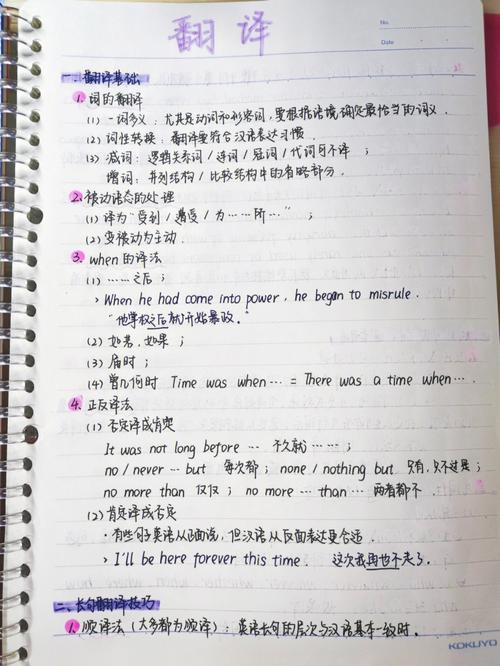 翻译
No.
Date
一.翻译基础
1. 词的翻译
(1) 一词多义：尤其是动词和形容词，要根据语境确定最恰当的词义.
(2) 词性转换：翻译要符合汉语表达习惯.
(3) 减词：逻辑关系词/连词/冠词/代词可不译；
增词：并列结构/比较结构中的省略部分.
2. 被动语态的处理
(1) 译为“受到/遭受/为……所…”；
(2) 变被动为主动.
3. when的译法
(1) ……之后；
> When he had come into power, he began to misrule.
“他掌权之后就开始暴政.”
(2) 如若，如果；
(3) 届时；
(4) 曾几何时 Time was when… = There was a time when….
4. 正反译法
(1) 否定译成肯定
It was not long before … 不久就……；
no / never … but 每次都； none / nothing but 只有，只不过是；
no more than 仅仅； no more … than … 两者都不
(2) 肯定译成否定
·有些句子英语从正面说，但汉语从反面表达更合适.
> I'll be here forever this time. 这次我再也不走了.
二.长句翻译技巧
1. 顺译法（大多都为顺译）：英语长句的层次与汉语基本一致时.
KOKUYO